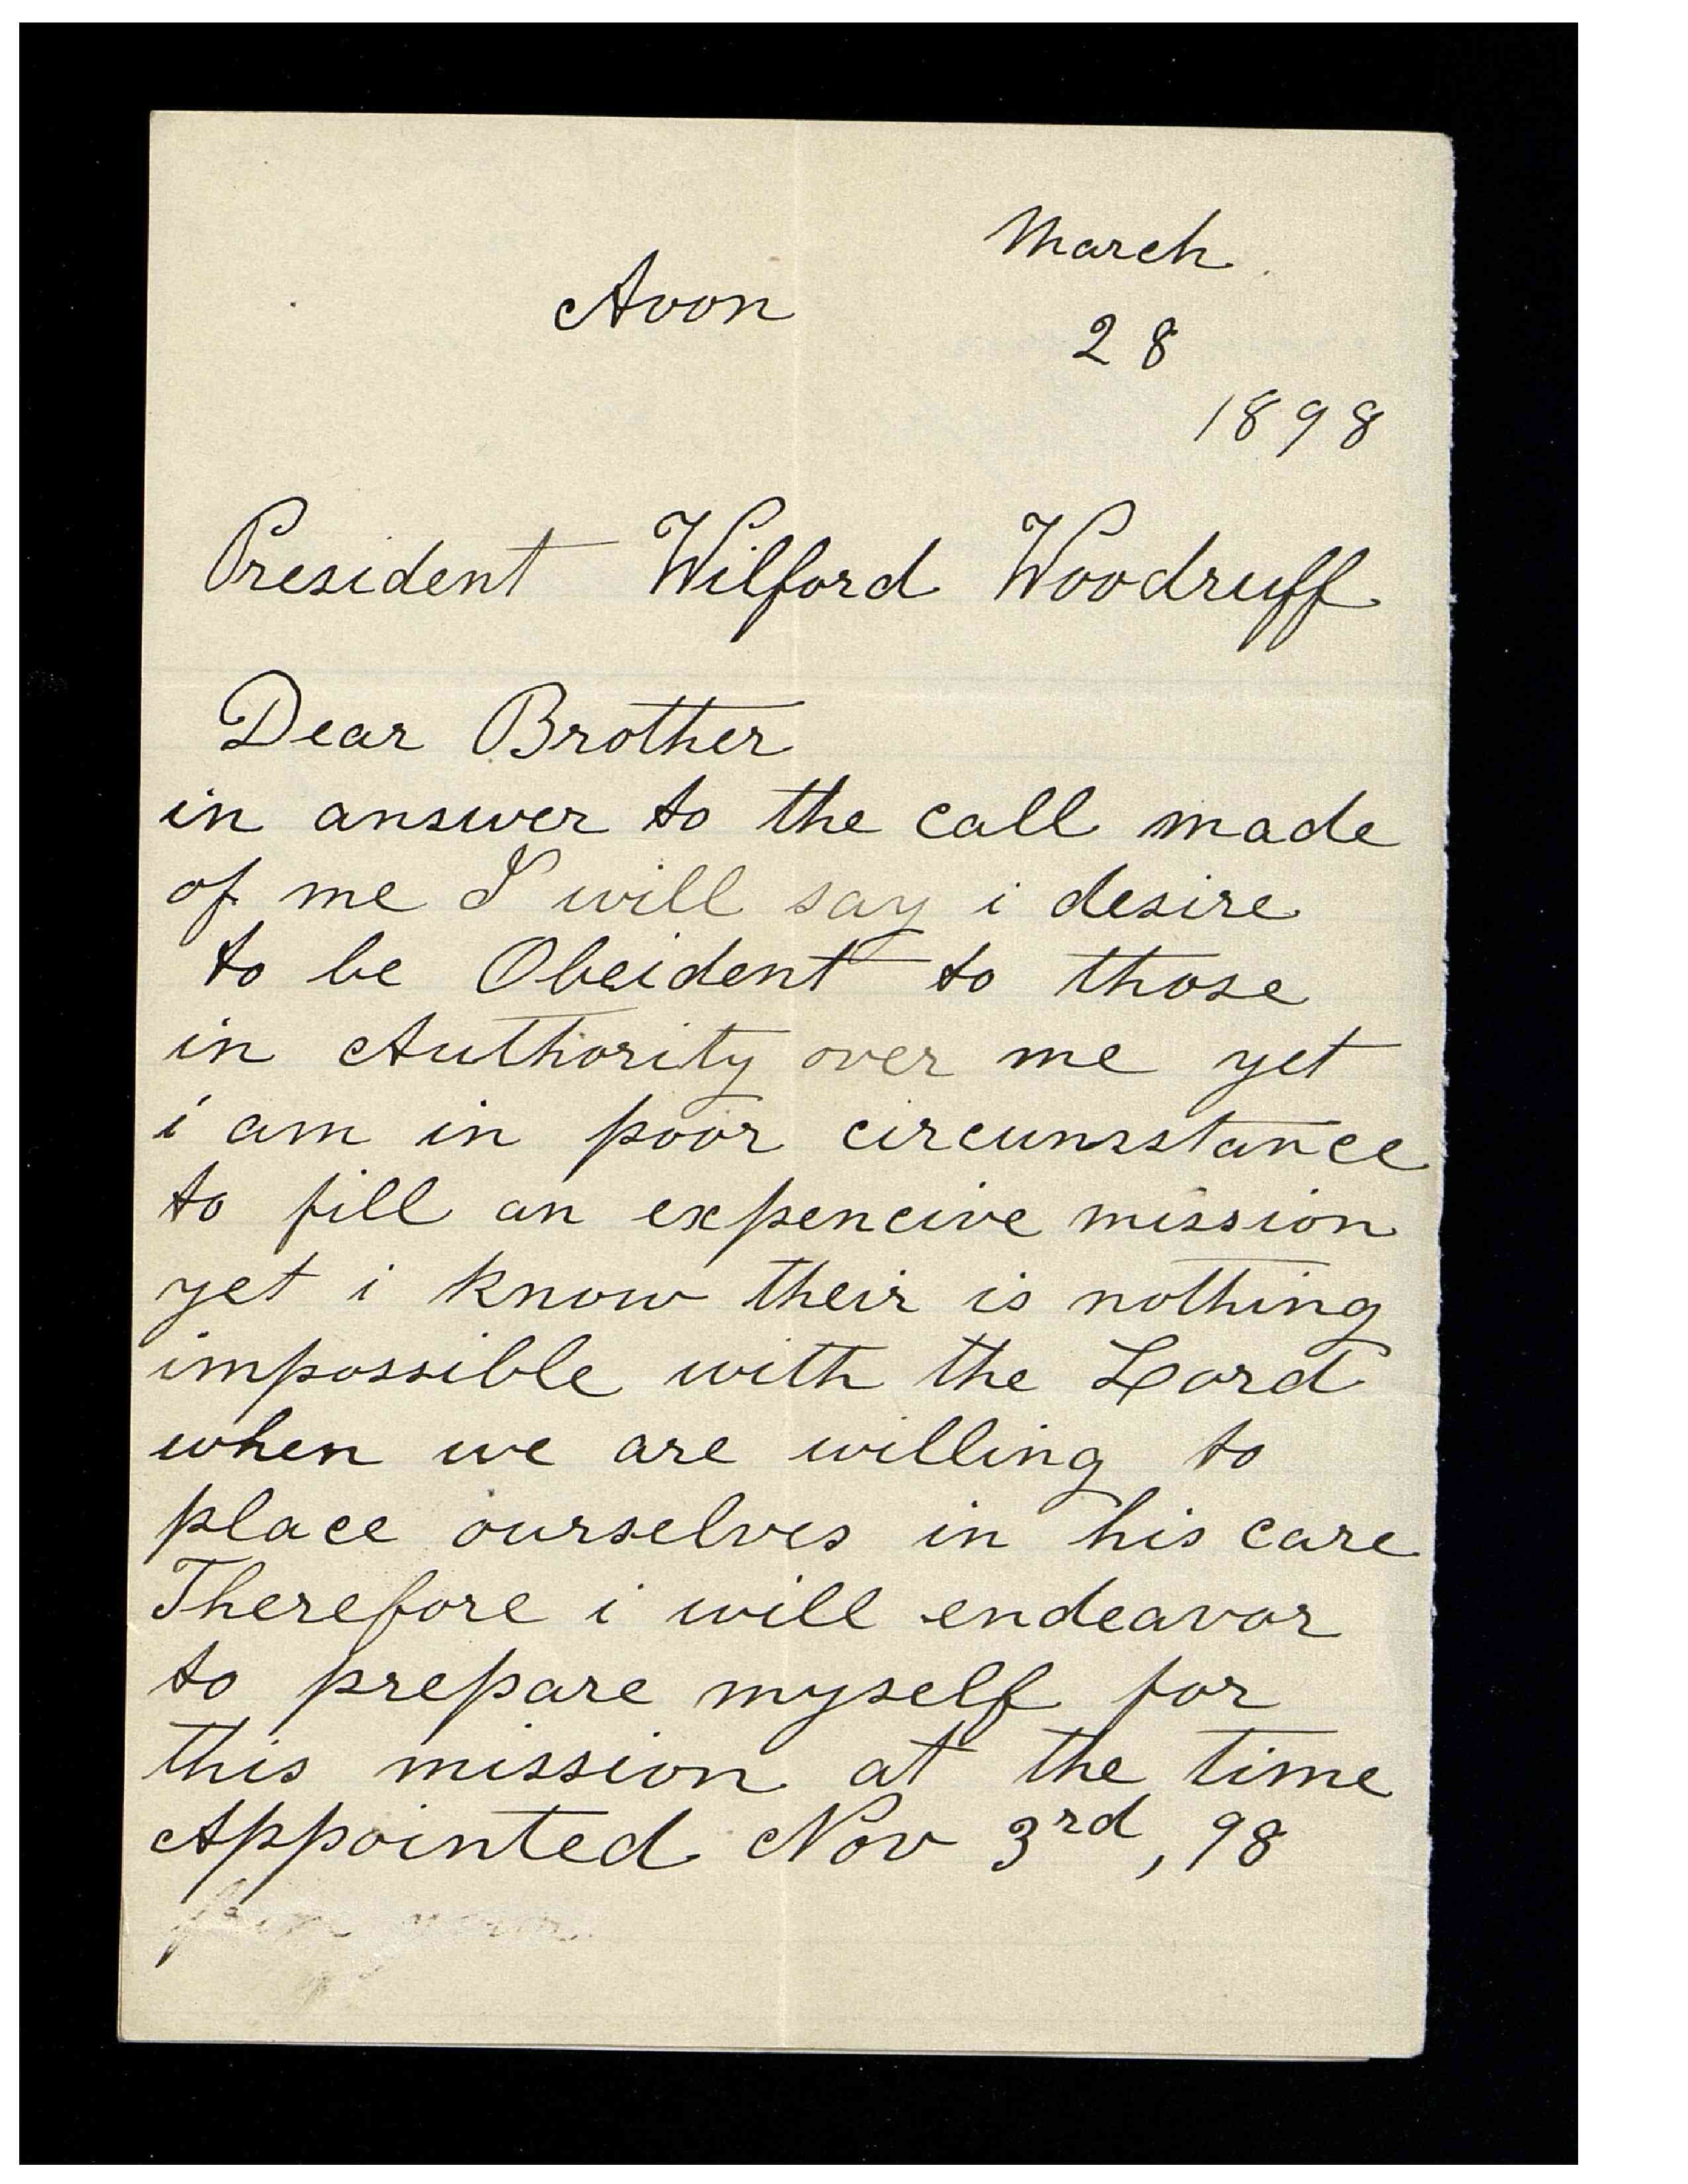 March
Avon
28
1898
President Wilford Woodruff
Dear Brother
in answer to the call made
of me I will say i desire
to be Obeident to those
in Authority over me yet
i am in poor circumstance
to fill an expencive mission
yet i know their is nothing
impossible with the Lord
when we are willing to
place ourselves in his care
Therefore i will endeavor
to prepare myself for
this mission at the time
Appointed Nov 3rd, 98